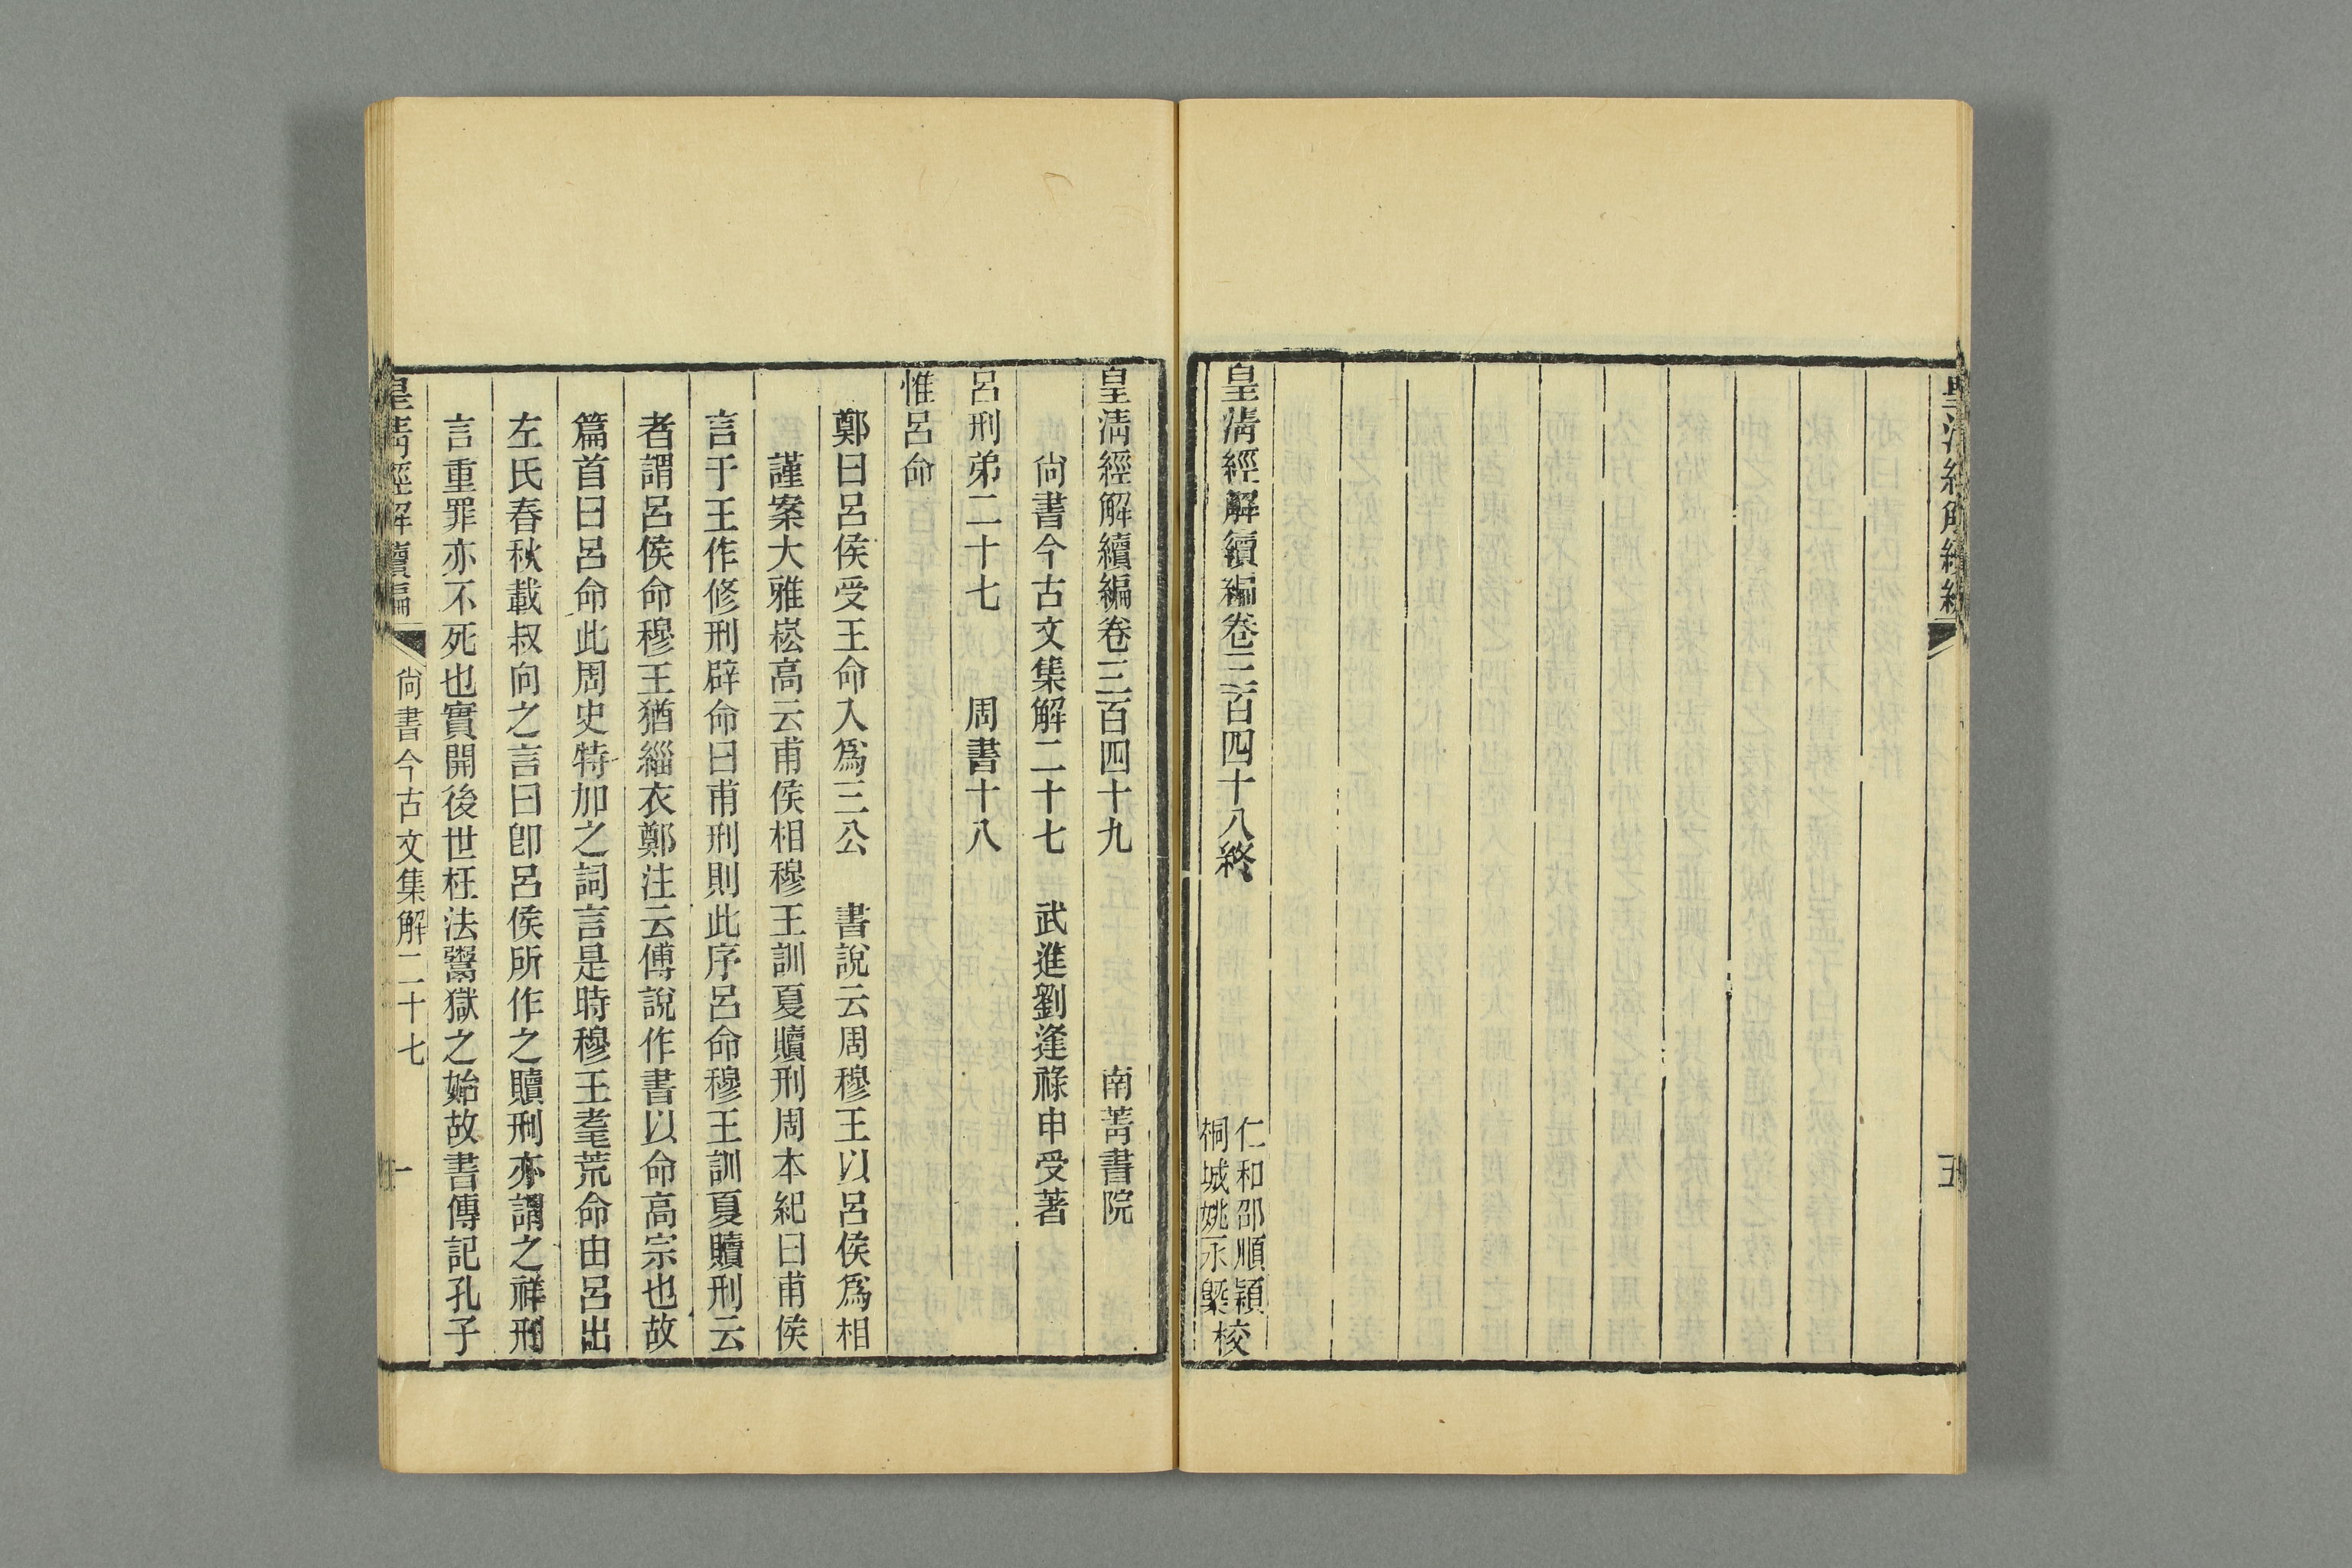 皇清經解續編
五
皇清經解續編卷三百四十八終
仁和邵順穎
桐城姚永㮣
校
皇清經解續編卷三百四十九　南菁書院
尙書今古文集解二十七　武進劉逢祿申受著
呂刑弟二十七　周書十八
惟呂命
鄭曰呂侯受王命入爲三公　書說云周穆王以呂侯爲相
謹案大雅崧高云甫侯相穆王訓夏贖刑周本紀曰甫侯
言于王作修刑辟命曰甫刑則此序呂命穆王訓夏贖刑云
者謂呂侯命穆王猶緇衣鄭注云傅說作書以命高宗也故
篇首曰呂命此周史特加之詞言是時穆王耄荒命由呂出
左氏春秋載叔向之言曰卽呂侯所作之贖刑亦謂之祥刑
言重罪亦不死也實開後世枉法鬻獄之始故書傳記孔子
皇清經解續編
尙書今古文集解二十七
一